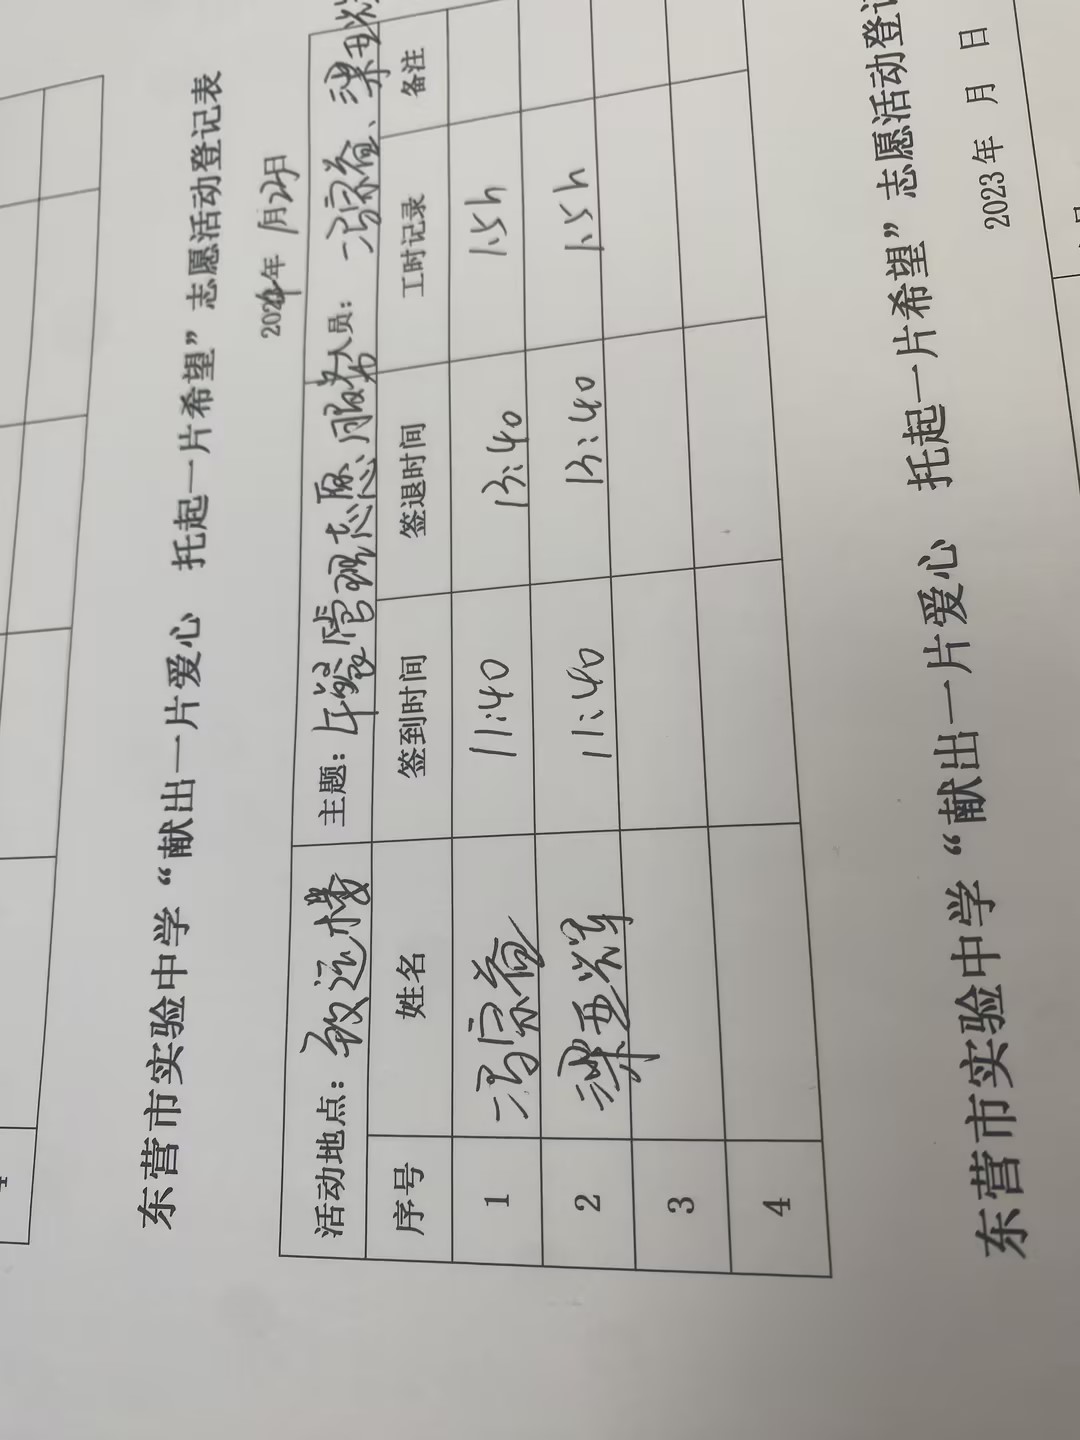 东营市实验中学“献出一片爱心 托起一片希望”志愿活动登记表
2024年1月24日
活动地点：致远楼 主题：午餐管理志愿服务 人员：冯宗益、梁亚
序号 姓名 签到时间 签退时间 工时记录 备注
1 冯宗益 11:40 13:40 1.5h
2 梁亚辉 11:40 13:40 1.5h
3
4
东营市实验中学“献出一片爱心 托起一片希望”志愿活动登记
2023年 月 日